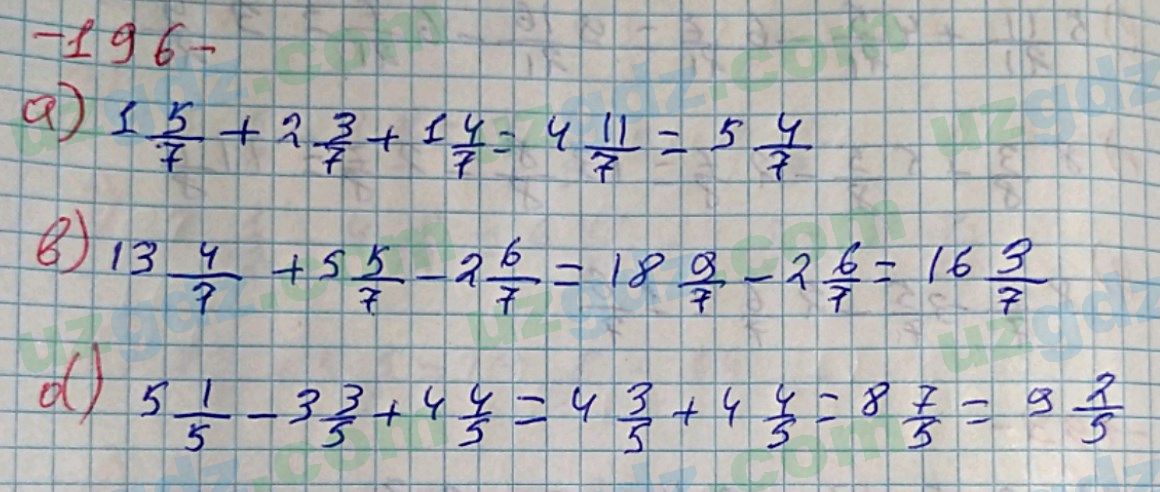 -196-
a) 1 5/7 + 2 3/7 + 1 4/7 = 4 11/7 = 5 4/7
b) 13 4/7 + 5 5/7 - 2 6/7 = 18 9/7 - 2 6/7 = 16 3/7
d) 5 1/5 - 3 3/5 + 4 4/5 = 4 3/5 + 4 4/5 = 8 7/5 = 9 2/5
uzgdz.com